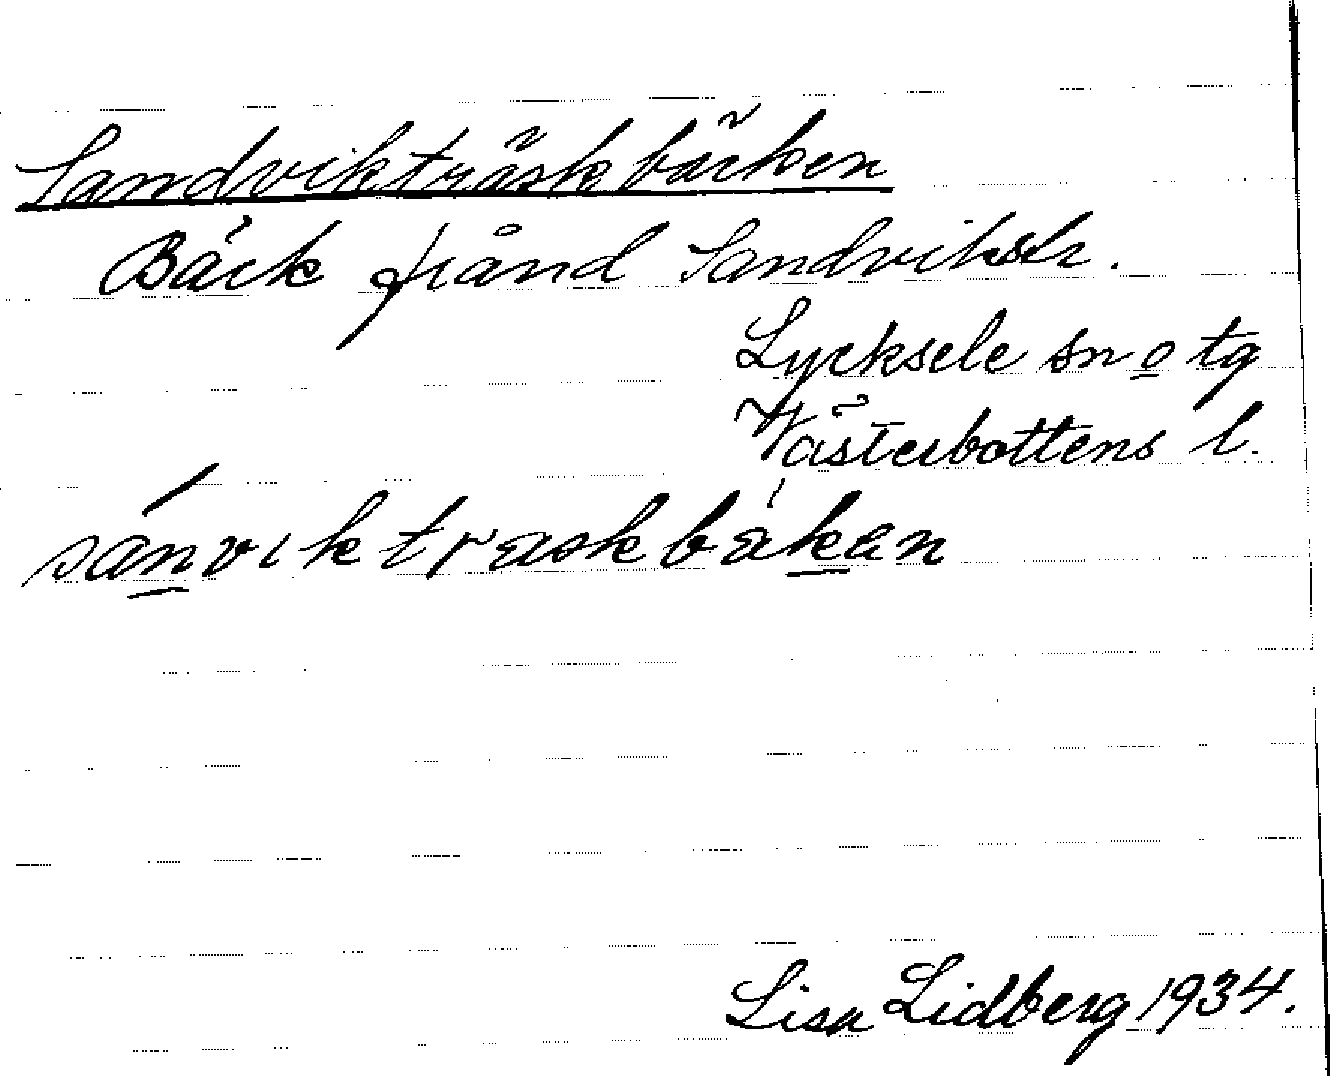 Sandvikträskbäcken
Bäck frånd Sandvikstr.
Lycksele sn o tg
Västerbottens l.
sánviktræskbækan
Lisa Lidberg 1934.